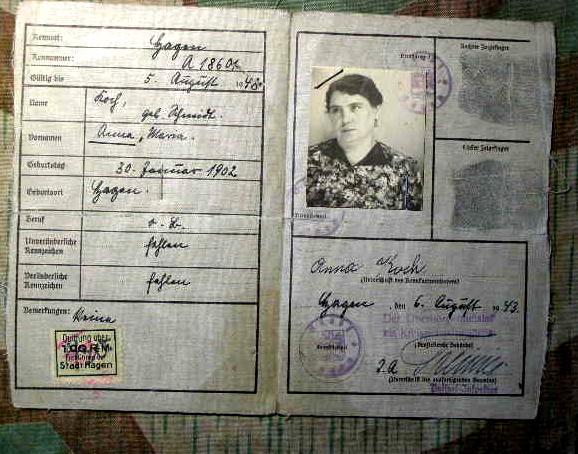 Kennort: Hagen
Kennummer: A 18601
Gültig bis 5. August 1948
Name Koch,
geb. Schmidt.
Vornamen Anna, Maria
Geburtstag 30. Januar 1902
Geburtsort Hagen.
Beruf o. B.
Unveränderliche Kennzeichen fehlen
Veränderliche Kennzeichen fehlen
Bemerkungen: Keine
Quittung über
1.00 RM
Stadt Hagen
Rechter Zeigefinger
Linker Zeigefinger
Anna Koch
(Unterschrift des Kennkarteninhabers)
Hagen, den 6. August 1943.
Der Oberbürgermeister
(Ausstellende Behörde)
J.A.
(Unterschrift des ausfertigenden Beamten)